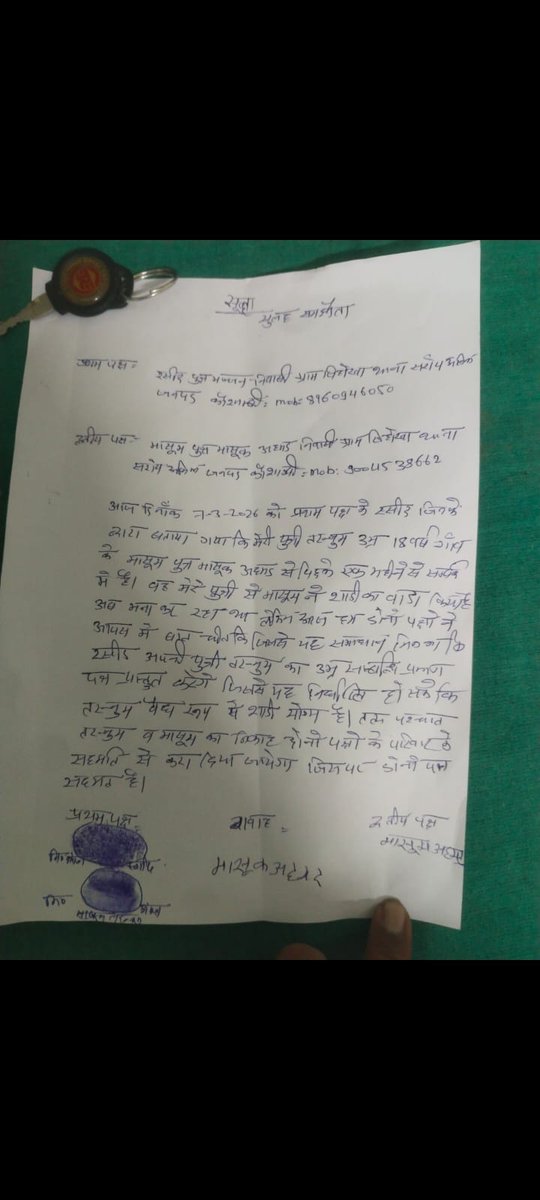 सुलह समझौता
प्रथम पक्ष:-
रसीद पुत्र निवासी ग्राम थाना सराय अकिल
जनपद कौशाम्बी: mob: 8960946050
द्वितीय पक्ष:- मासूम पुत्र मासूक अहमद निवासी ग्राम थाना
सराय अकिल जनपद कौशाम्बी: mob:
आज दिनाँक 7-3-2026 को प्रथम पक्ष के रसीद जिनके
द्वारा बताया गया कि मेरी पुत्री तरन्नुम उम्र 18 वर्ष गाँव
के मासूम पुत्र मासूक अहमद से पिछले एक महीने से सम्पर्क
में है। वह मेरे पुत्री से मासूम ने शादी का वादा किया है
अब मना कर रहा था लेकिन आज हम दोनों पक्षों ने
आपस में बात चीत कि जिससे यह समाधान निकला कि
रसीद अपनी पुत्री तरन्नुम का उम्र सम्बन्धित प्रमाण
पत्र प्रस्तुत करेंगे जिससे यह निर्धारित हो सके कि
तरन्नुम वैध रूप में शादी योग्य है। तत्पश्चात
तरन्नुम व मासूम का निकाह दोनों पक्षों के परिवार के
सहमति से करा दिया जायेगा जिसपर दोनों पक्ष
सहमत है।
प्रथम पक्ष गवाह द्वितीय पक्ष
रसीद